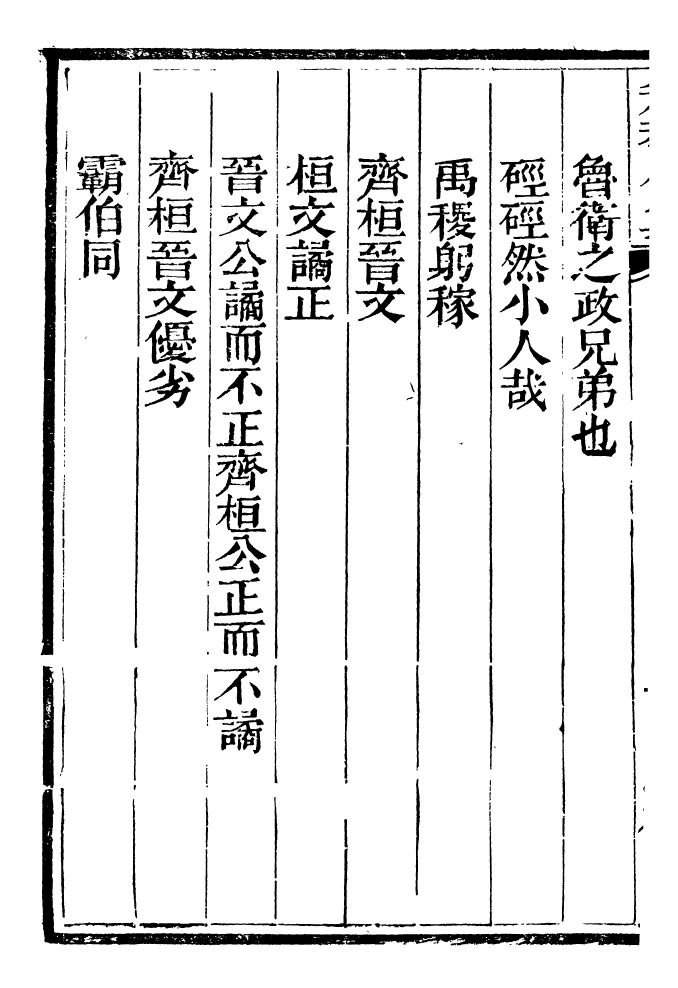 魯衛之政兄弟也
硜硜然小人哉
禹稷躬稼
齊桓晉文
桓文譎正
晉文公譎而不正齊桓公正而不譎
齊桓晉文優劣
霸伯同